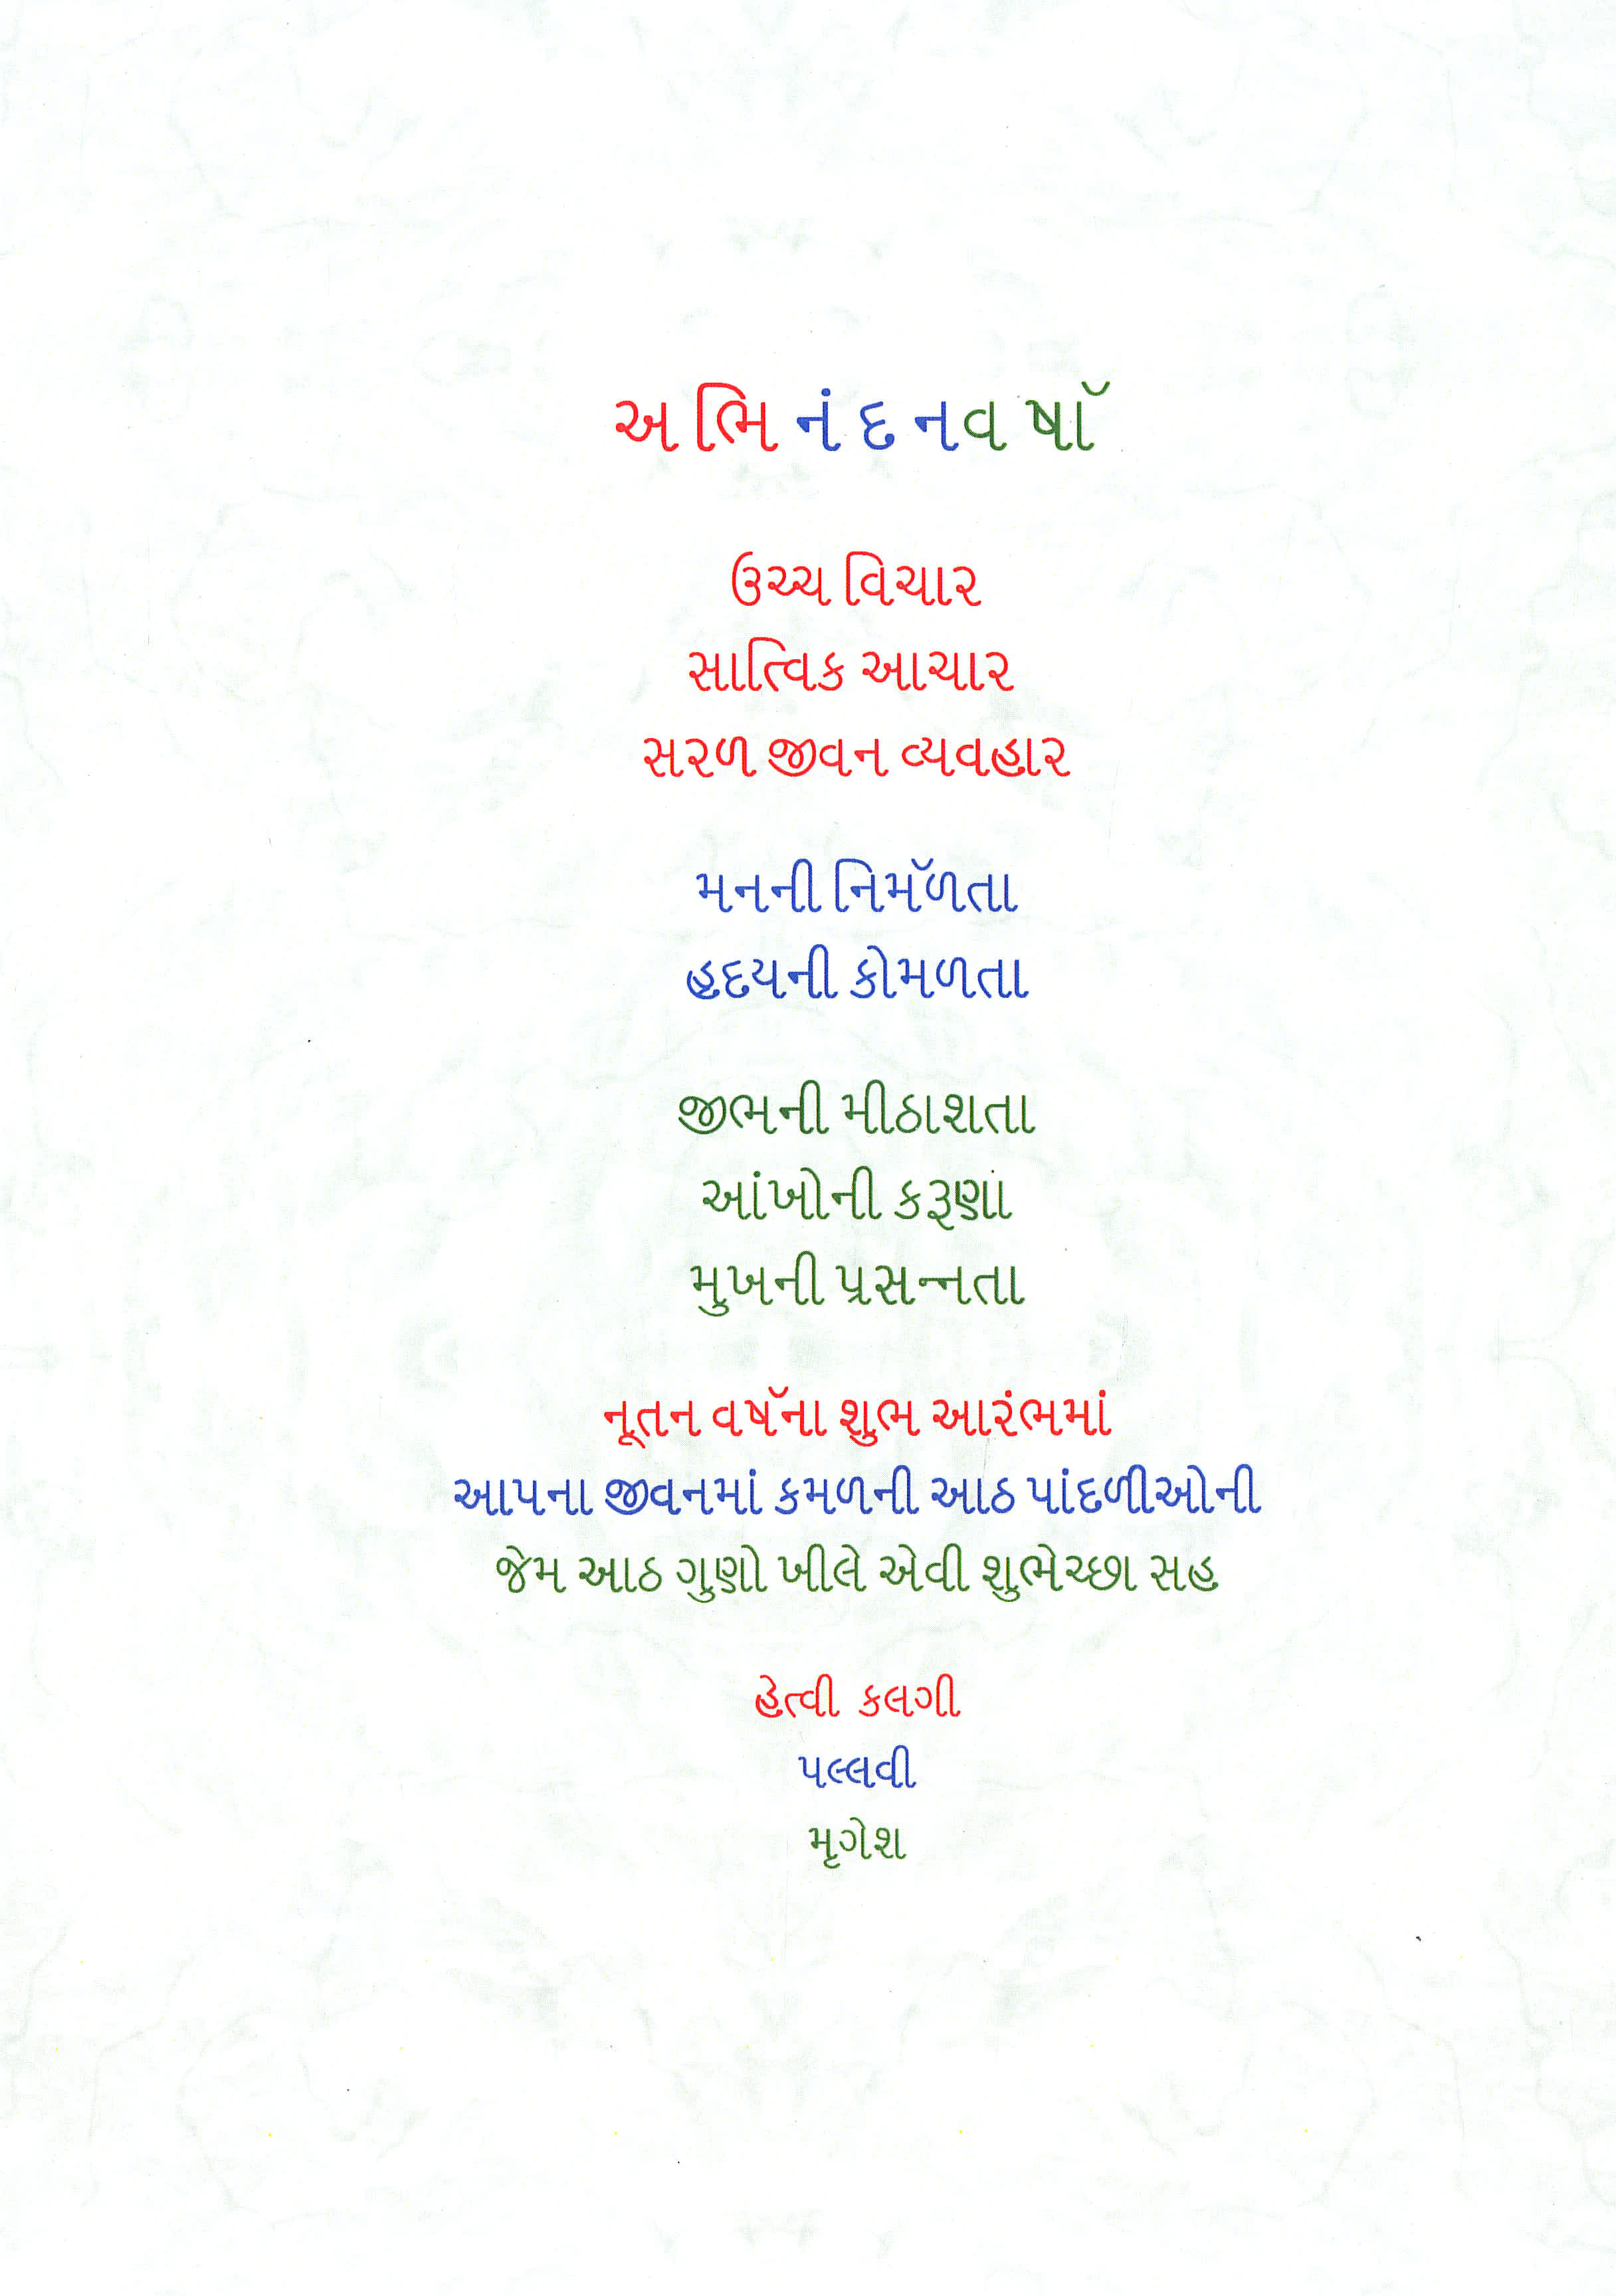 અ ભિ નં દ ન વ ર્ષા
ઉચ્ચ વિચાર
સાત્વિક આચાર
સરળ જીવન વ્યવહાર
મનની નિમૅળતા
હૃદયની કોમળતા
જીભની મીઠાશતા
આંખોની કરૂણા
મુખની પ્રસન્નતા
નૂતન વષૅના શુભ આરંભમાં
આપના જીવનમાં કમળની આઠ પાંદળીઓની
જેમ આઠ ગુણો ખીલે એવી શુભેચ્છા સહ
હેત્વી કલગી
પલ્લવી
મૃગેશ